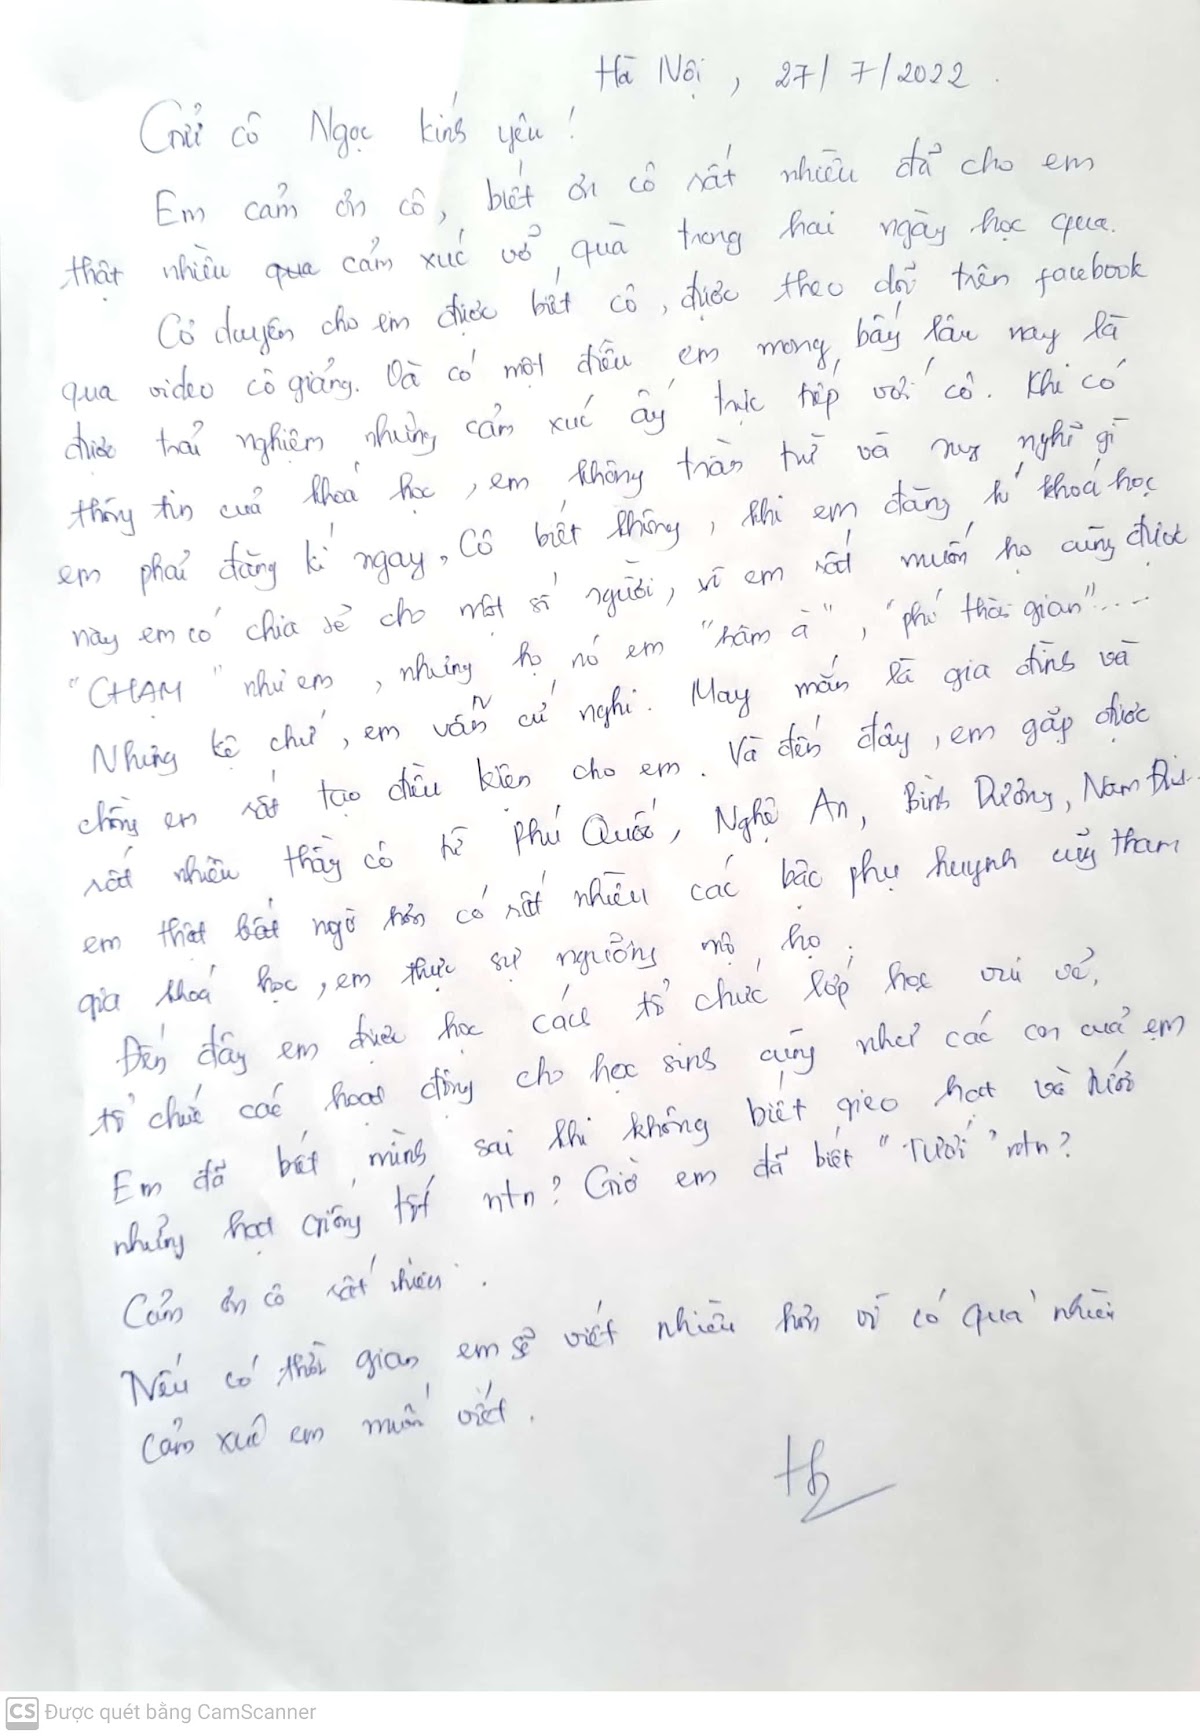 Hà Nội, 27/7/2022.
Gửi cô Ngọc kính yêu!
Em cảm ơn cô, biết ơn cô rất nhiều đã cho em
thật nhiều qua cảm xúc vỡ quà trong hai ngày học qua.
Có duyên cho em được biết cô, được theo dõi trên facebook
qua video cô giảng. Và có một điều em mong bấy lâu nay là
được trải nghiệm những cảm xúc ấy trực tiếp với cô. Khi có
thông tin của khoá học, em không trần trừ và suy nghĩ gì
em phải đăng kí ngay, Cô biết không, khi em đăng kí khoá học
này em có chia sẻ cho một số người, vì em rất muốn họ cũng được
"CHẠM" như em, nhưng họ nói em "hâm à", "phí thời gian"....
Nhưng kệ chứ, em vẫn cứ nghi. May mắn là gia đình và
chồng em rất tạo điều kiện cho em. Và đến đây, em gặp được
rất nhiều thầy cô từ Phú Quốc, Nghệ An, Bình Dương, Nam Định..
em thật bất ngờ hơn có rất nhiều các bậc phụ huynh cũng tham
gia khoá học, em thực sự ngưỡng mộ họ.
Đến đây em được học cách tổ chức lớp học vui vẻ,
tổ chức các hoạt động cho học sinh cũng như các con của em
Em đã biết mình sai khi không biết gieo hạt và tưới
những hạt giống tốt ntn? Giờ em đã biết "TƯỚI" ntn?
Cảm ơn cô rất nhiều.
Nếu có thời gian em sẽ viết nhiều hơn vì có quá nhiều
cảm xúc em muốn viết.
CS Được quét bằng CamScanner